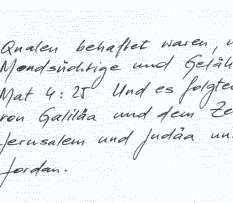 Qualen behaftet waren,
Mondsüchtige und Geläh
Mat 4: 25 Und es folgten
von Galiläa und dem Ze
Jerusalem und Judäa un
Jordan.